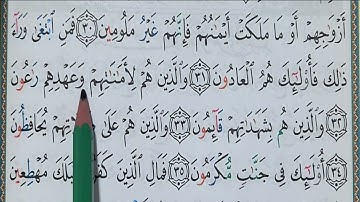 أَزْوَٰجِهِمْ أَوْ مَا مَلَكَتْ أَيْمَٰنُهُمْ فَإِنَّهُمْ غَيْرُ مَلُومِينَ ٣٠ فَمَنِ ٱبْتَغَىٰ وَرَآءَ
ذَٰلِكَ فَأُو۟لَٰٓئِكَ هُمُ ٱلْعَادُونَ ٣١ وَٱلَّذِينَ هُمْ لِأَمَٰنَٰتِهِمْ وَعَهْدِهِمْ رَٰعُونَ
٣٢ وَٱلَّذِينَ هُم بِشَهَٰدَٰتِهِمْ قَآئِمُونَ ٣٣ وَٱلَّذِينَ هُمْ عَلَىٰ يُحَافِظُونَ
٣٤ أُو۟لَٰٓئِكَ فِى جَنَّٰتٍ مُّكْرَمُونَ ٣٥ فَمَالِ ٱلَّذِينَ مُهْطِعِينَ